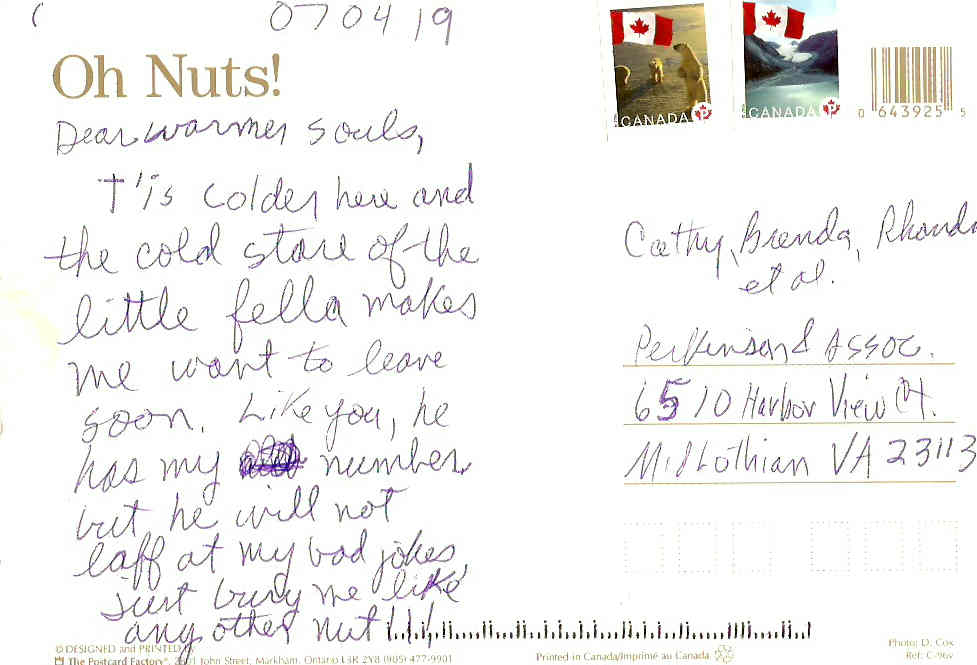 07 04 19
Oh Nuts!
Dear warmer souls,
T'is colder here and
the cold stare of the
little fella makes
me want to leave
soon. Like you, he
has my number,
but he will not
laff at my bad jokes,
just bury me like
any other nut!!!
CANADA P
CANADA P
0 643925 5
Cathy, Brenda, Rhonda
et al.
Perkinson & Assoc.
6510 Harbor View Ct.
Midlothian VA 23113
© DESIGNED and PRINTED BY
The Postcard Factory®, John Street, Markham, Ontario L3R 2Y8 (905) 477-9901
Printed in Canada/Imprimé au Canada.
Photo: D. Cox
Ref: C-96v